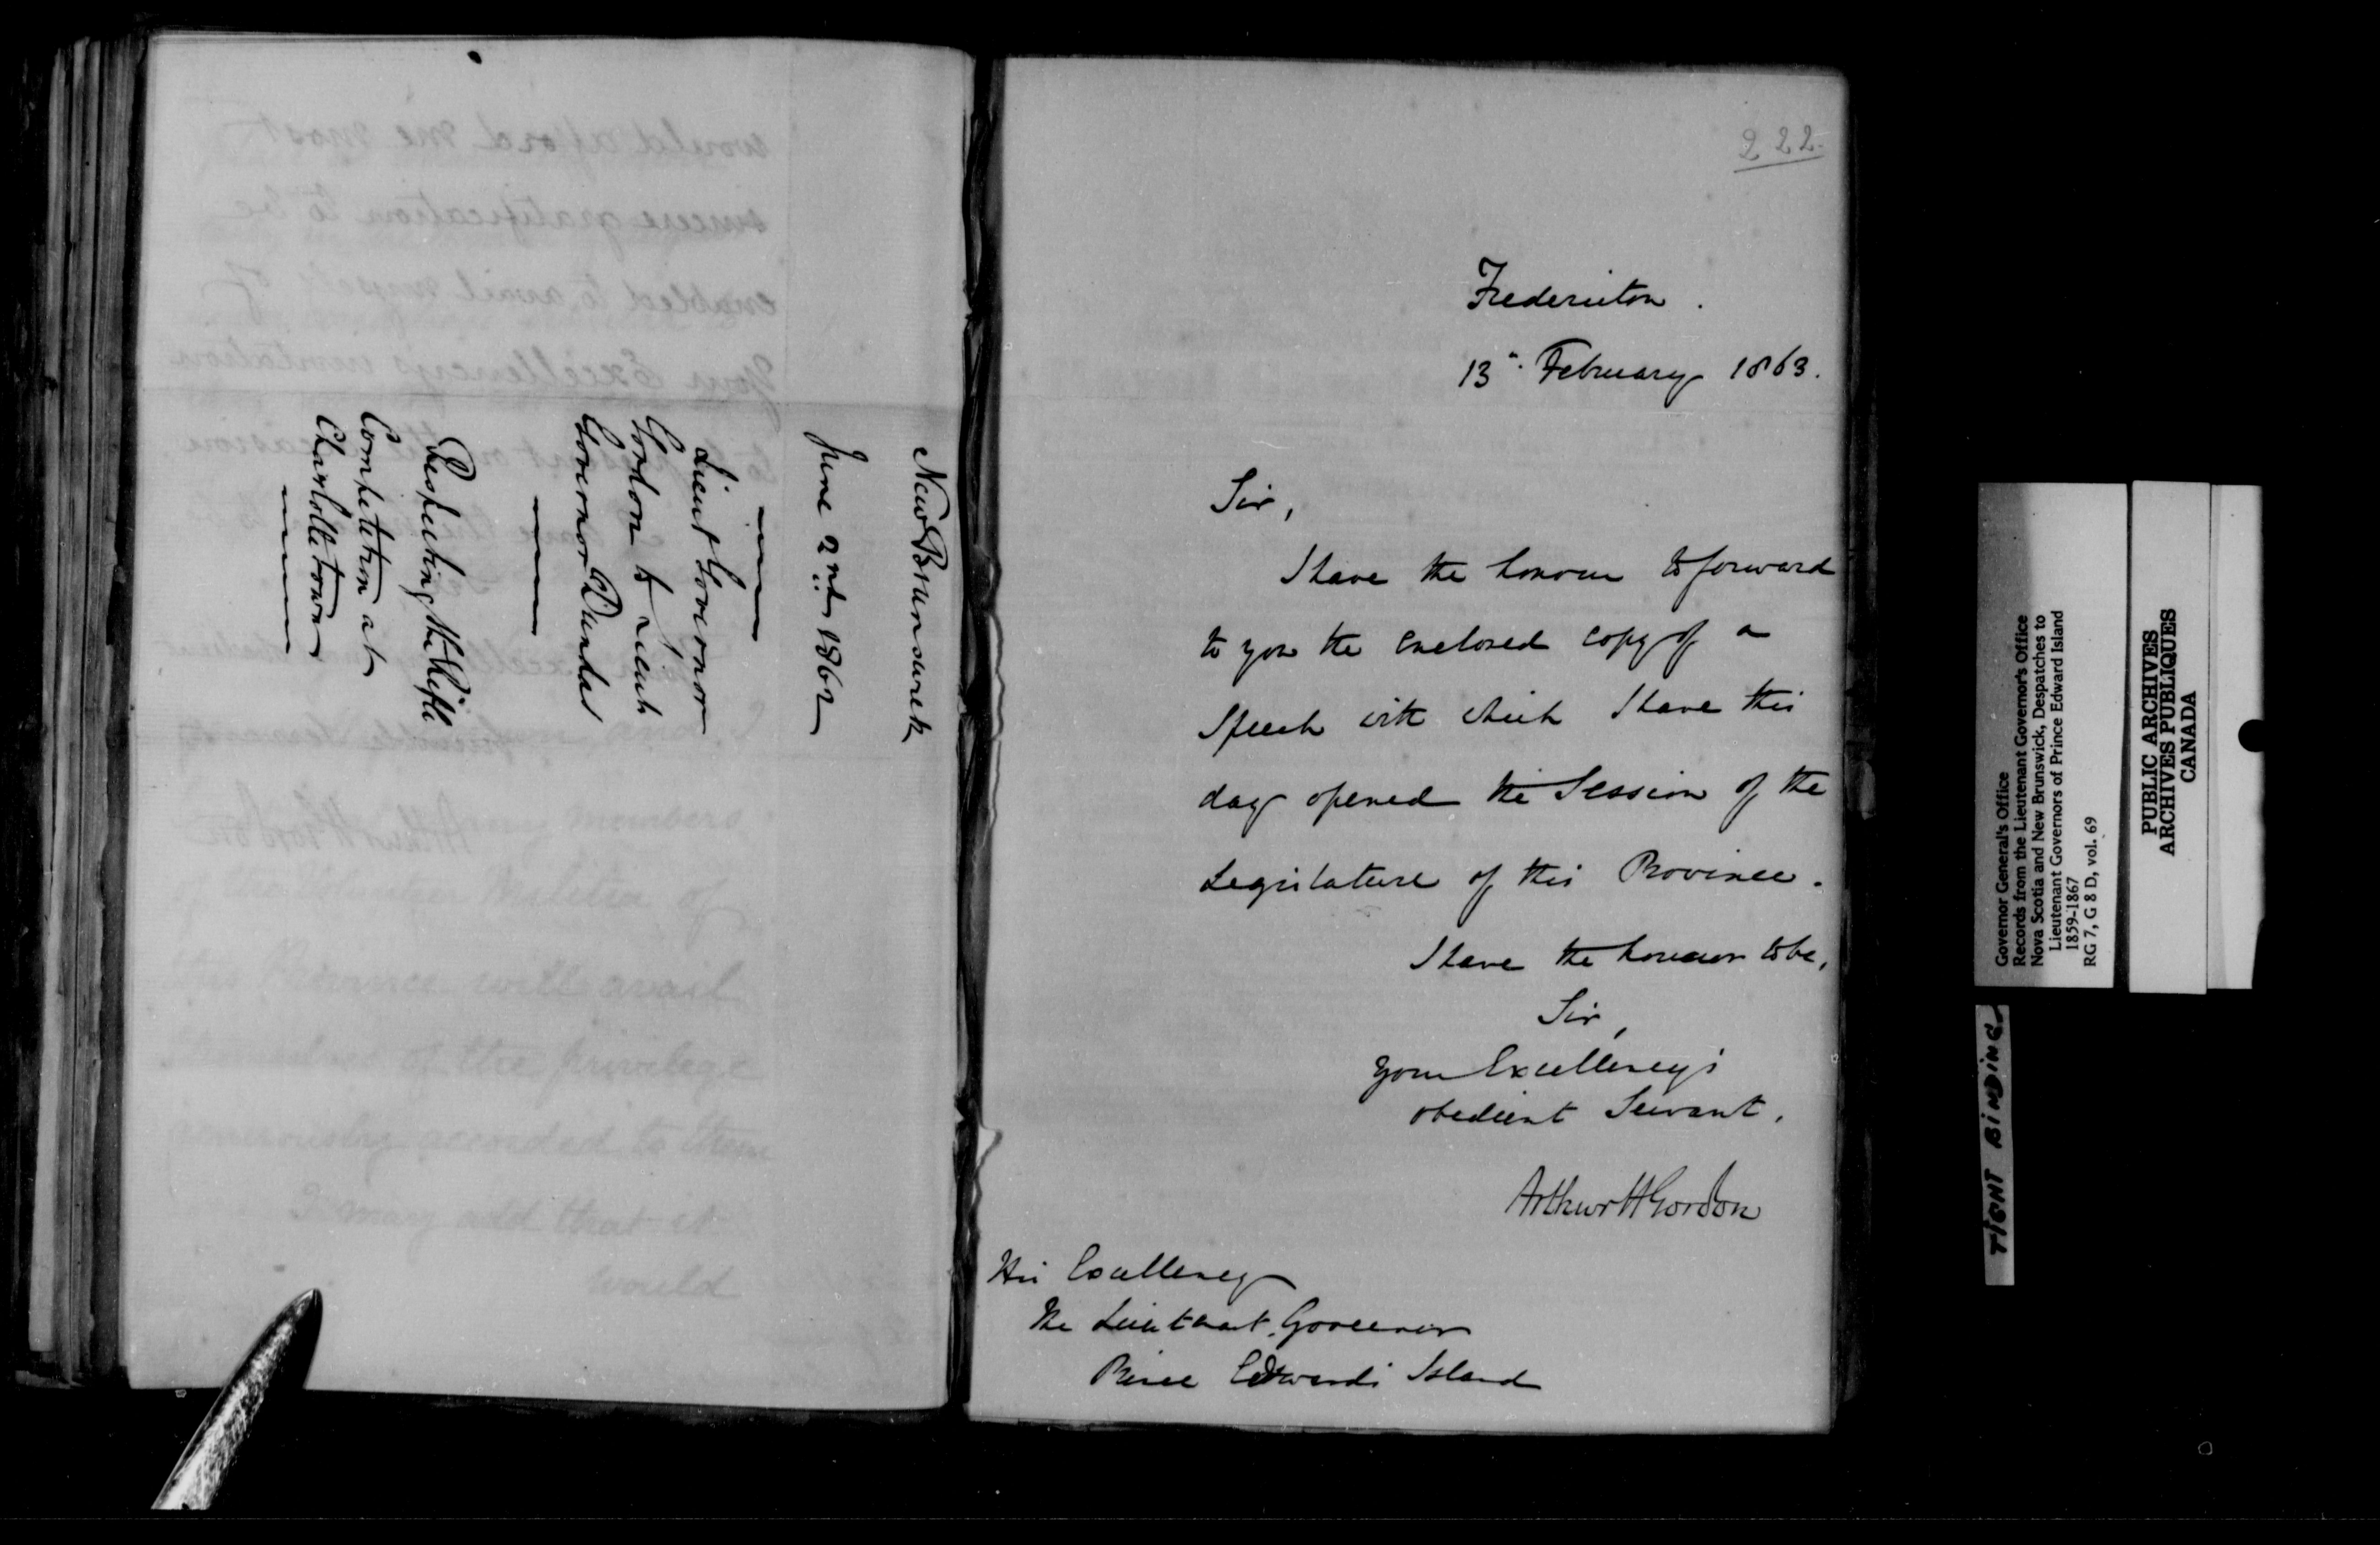 New Brunswick
June 2nd 1862
Lieut Governor
Gordon to Lieut
Governor Dundas
Respecting the Rifle
Competition at
Charlottetown
222
Fredericton.
13" February 1863.
Sir,
I have the honour to forward
to you the enclosed copy of a
Speech with which I have this
day opened the Session of the
Legislature of this Province.
I have the honour to be,
Sir,
Your Excellency's
obedient Servant,
Arthur H Gordon
His Excellency
The Lieutenant Governor
Prince Edward's Island
would afford me most
sincere gratification to be
enabled to avail myself of
Your Excellency's invitation
many members
Volunteer Militia of
Province will avail
themselves of the privilege
generously accorded to them
I may add that it
would
Governor General's Office
Records from the Lieutenant Governor's Office
Nova Scotia and New Brunswick, Despatches to
Lieutenant Governors of Prince Edward Island
1859-1867
RG 7, G 8 D, vol. 69
PUBLIC ARCHIVES
ARCHIVES PUBLIQUES
CANADA
TIGHT BINDING